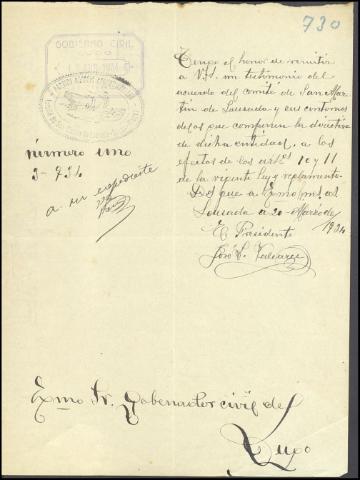 730
GOBIERNO CIVIL
LUGO
Tengo el honor de remitir
a V.S. un testimonio del
acuerdo del comité de San Mar
tin de Lousada y sus contornos
de los que componen la directiva
de dicha entidad, a los
efectos de los artos 10 y 11
de la vigente ley y reglamento.
Dios que a
Lousada a 20 Marzo de
1934
El Presidente
José L. Valcarce
número uno
3-734
a su expediente
Exmo Sr. Gobenador civil de
Lugo